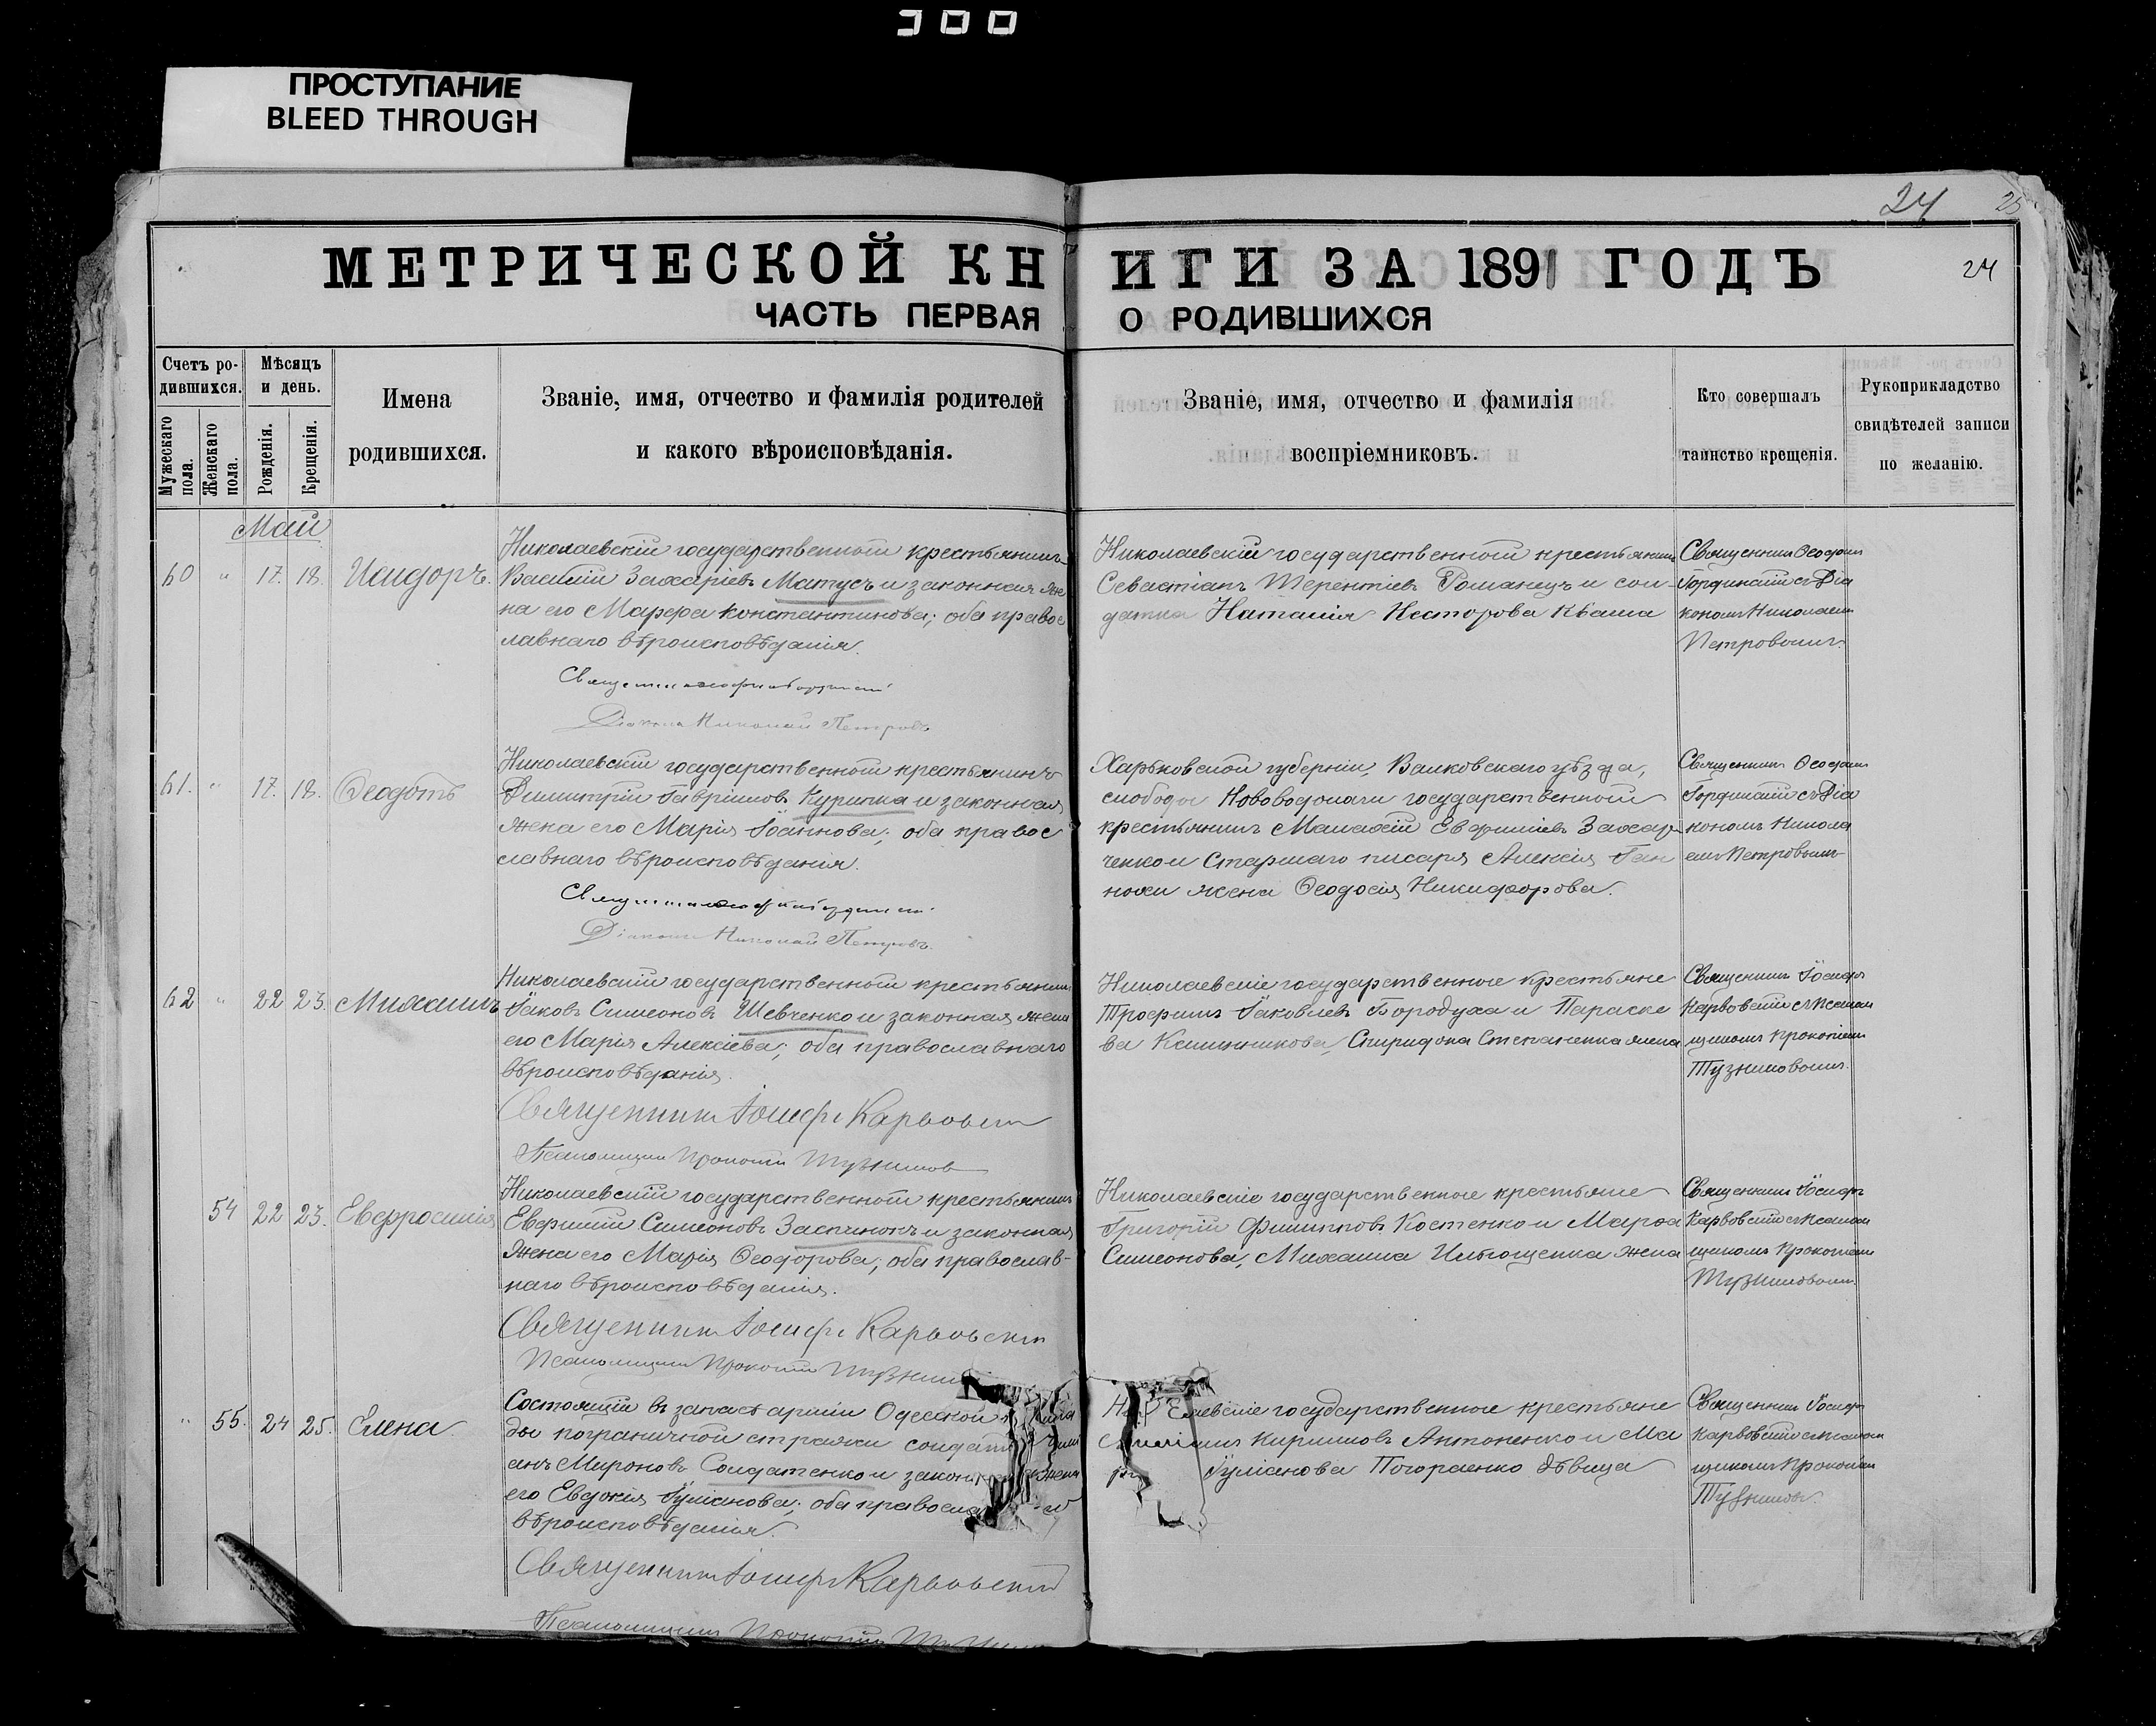 ПРОСТУПАНИЕ
BLEED THROUGH
24
25
МЕТРИЧЕСКОЙ КНИГИ ЗА 1891 ГОДЪ
24
ЧАСТЬ ПЕРВАЯ О РОДИВШИХСЯ
Счетъ родившихся.
Мужескаго пола.
Женскаго пола.
Мѣсяцъ и день.
Рожденія.
Крещенія.
Имена
родившихся.
Званіе, имя, отчество и фамилія родителей
и какого вѣроисповѣданія.
Званіе, имя, отчество и фамилія
воспріемниковъ.
Кто совершалъ
таинство крещенія.
Рукоприкладство
свидѣтелей записи
по желанію.
Май
60 " 17. 18. Исидоръ.
Николаевскій государственный крестьянинъ
Василій Захаріевъ Матусъ и законная же
на его Марфа Константинова; оба правос
лавнаго вѣроисповѣданія.
Діаконъ Николай Петровъ
Николаевскій государственный крестьянинъ
Севастіанъ Терентіевъ Романецъ и сол-
датка Наталія Несторова Кваша
Священникъ Ѳеодосій
съ Діа
кономъ Николаемъ
Петровымъ.
61. " 17. 18. Ѳеодотъ
Николаевскій государственный крестьянинъ
Димитрій Гавріиловъ Курипка и законная
жена его Марія Іоаннова; оба правос
славнаго вѣроисповѣданія.
Діаконъ Николай Петровъ.
Харьковской губерніи, Валковскаго уѣзда,
слободы Нововодолаги государственный
крестьянинъ Малахій Евфиміевъ Захар
ченко и старшаго писаря Алексія Ган
ночки жена Ѳеодосія Никифорова.
Священникъ Ѳеодосій
съ Діа
кономъ Никола
емъ Петровымъ
62 " 22 23. Михаилъ
Николаевскій государственный крестьянинъ
Іаковъ Симеоновъ Шевченко и законная жена
его Марія Алексіева; оба православнаго
вѣроисповѣданія.
Священникъ Іосифъ Карвовскій
Псаломщикъ Прокопій Тузниковъ
Николаевскіе государственные крестьяне
Трофимъ Іаковлевъ Бородуха и Параске
ва Калинникова, Спиридона Степаненка жена
Священникъ Іосифъ
Карвовскій съ псалом
щикомъ Прокопіемъ
Тузниковымъ.
54 22 23. Евфросинія
Николаевскій государственный крестьянинъ
Евфимій Симеоновъ Заспинокъ и законная
жена его Марія Ѳеодорова; оба православ-
наго вѣроисповѣданія.
Священникъ Іосифъ Карвовскій
Псаломщикъ Прокопій
Николаевскіе государственные крестьяне
Григорій Филипповъ Костенко и Марѳа
Симеонова, Михаила жена
Священникъ Іосифъ
Карвовскій съ псалом
щикомъ Прокопіемъ
Тузниковымъ.
" 55. 24 25. Елена
Состоящій въ запасѣ арміи Одесской
ды пограничной стражи солдатъ
анъ Мироновъ Солдатенко и жена
его Евдокія Іуліанова; оба
вѣроисповѣданія.
Священникъ Іосифъ Карвовскій
Псаломщикъ Прокопій
государственные крестьяне
Кирилловъ Антоненко и Ма
Іуліанова Погорленко дѣвица
Священникъ Іосифъ
Карвовскій съ псалом
щикомъ Прокопіем
Тузниковъ.